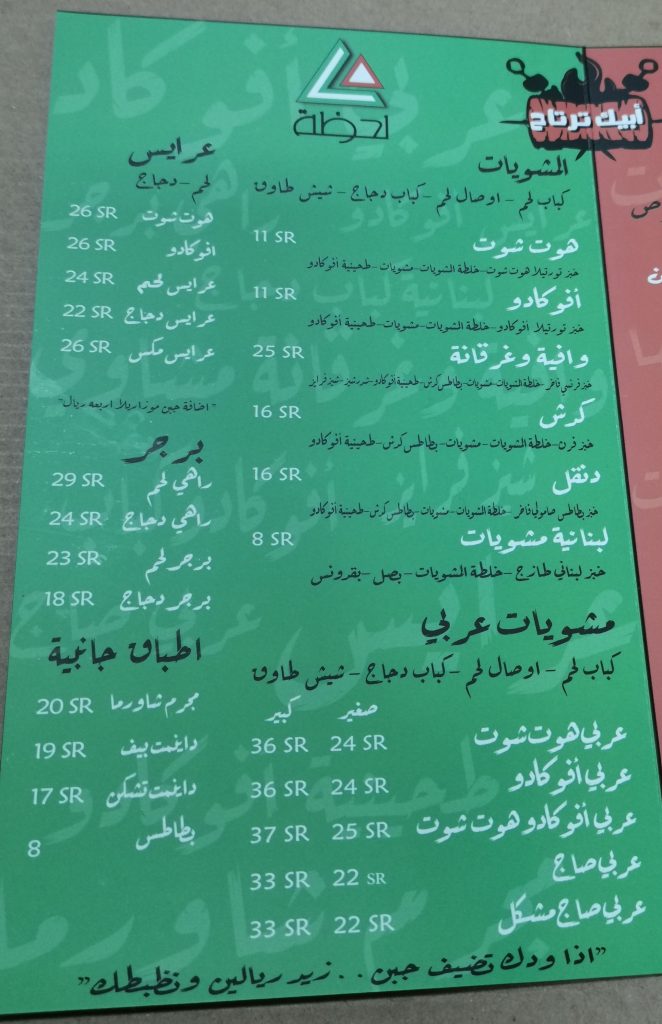 لحظة
أبيك ترتاح
المشويات
كباب لحم - اوصال لحم - كباب دجاج - شيش طاوق
هوت شوت 11 SR
خبز تورتيلا هوت شوت - خلطة الشويات - مشويات - طحينية أفوكادو
أفوكادو 11 SR
خبز تورتيلا أفوكادو - خلطة الشويات - مشويات - طحينية أفوكادو
وافية وغرقانة 25 SR
خبز فرنسي فاخر - خلطة الشويات - مشويات - بطاطس كرش - طحينية أفوكادو
كرش 16 SR
خبز فرن - خلطة الشويات - مشويات - بطاطس كرش - طحينية أفوكادو
دنقل 16 SR
خبز بطاطس صامولي فاخر - خلطة الشويات - مشويات - بطاطس كرش - طحينية أفوكادو
لبنانية مشويات 8 SR
خبز لبناني طازج - خلطة الشويات - بصل - بقدونس
مشويات عربي
كباب لحم - اوصال لحم - كباب دجاج - شيش طاوق
صغير كبير
عربي هوت شوت 24 SR 36 SR
عربي أفوكادو 24 SR 36 SR
عربي أفوكادو هوت شوت 25 SR 37 SR
عربي صاج 22 SR 33 SR
عربي صاج مشكل 22 SR 33 SR
عرايس
لحم - دجاج
هوت شوت 26 SR
افوكادو 26 SR
عرايس لحم 24 SR
عرايس دجاج 22 SR
عرايس مكس 26 SR
"اضافة جبن موزاريلا اربعه ريال"
برجر
راهي لحم 29 SR
راهي دجاج 24 SR
برجر لحم 23 SR
برجر دجاج 18 SR
اطباق جانبية
مجرم شاورما 20 SR
داينمت بيف 19 SR
داينمت تشكن 17 SR
بطاطس 8
"اذا ودك تضيف جبن .. زيد ريالين ونظبطك"